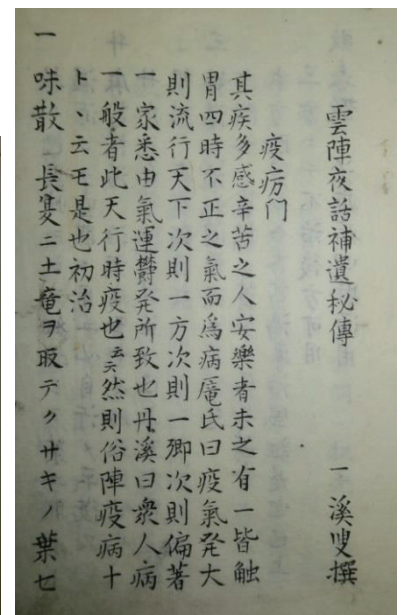 雲陣夜話補遺秘傳 一溪叟撰
疫疠门
其疾多感辛苦之人安樂者未之有一皆触
冒四時不正之氣而爲病厖氏曰疫氣発大
則流行天下次則一方次則一郷次則偏著
一家悉由氣運欝発所致也丹溪曰衆人病
一般者此天行時疫也云云然則俗陣疫病十
ト、云モ是也初治
一味散 長夏ニ土竜ヲ取テクサキノ葉七